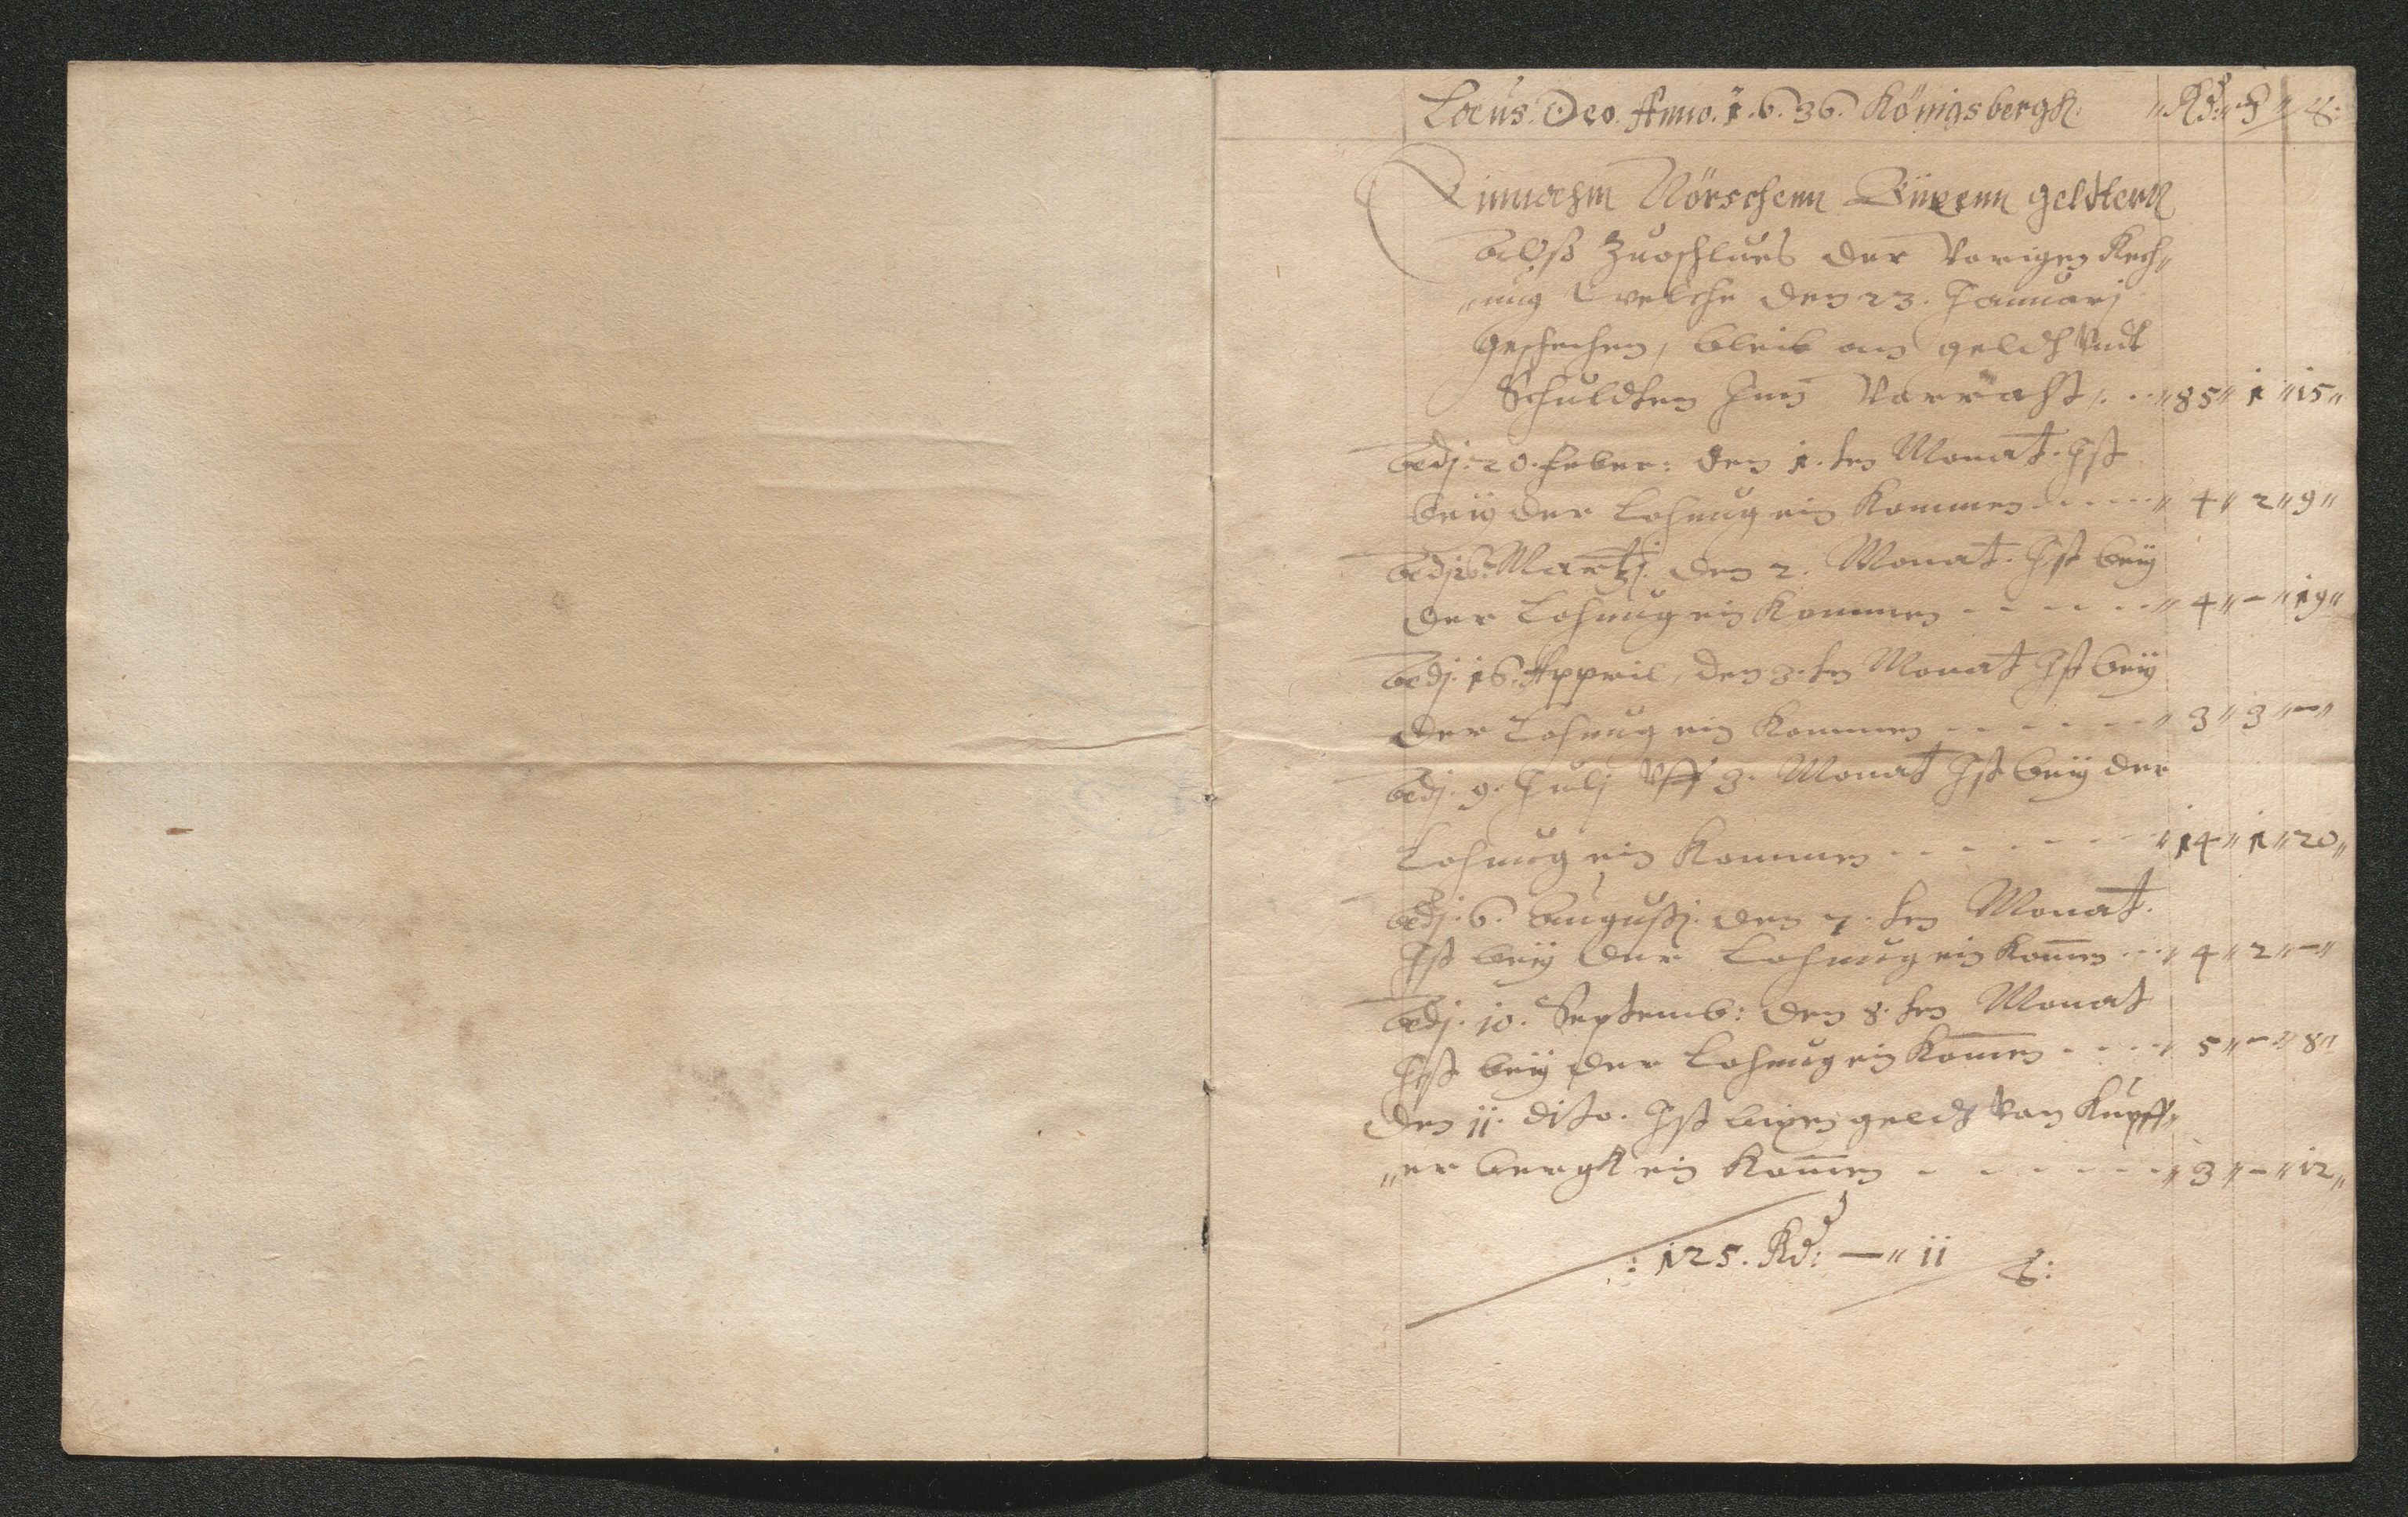 Laus. Deo. Anno. 1.6.36. Königsbergk. "Rd:" "
Einnahm Nörschenn Büxenn geldternn
Alß Zuoschlues der Vorigen Rech"
"nung welche den 23. Januarj
geschehen, bleib an geldt undt
Schuldten Inn Vorraht. "85" 1 "15"
Adj: 20. Feber: den 1. ten Monat. Ist
beÿ der Lohnung ein Kommen - - - - " 4 " 2 " 9 "
Adj 16. Martzj. den 2. Monat. Ist beÿ
der Lohnung ein Kommen - - - - " 4 " - " 19 "
Adj. 16. Appril, den 3. ten Monat Ist beÿ
der Lohnung ein Kommen - - - - " 3 " 3 " - "
Adj. 9. Julj Uff 3. Monat Ist beÿ der
Lohnung ein Kommen - - - - " 14 " 1 " 20 "
Adj. 6. Augustj. den 7. ten Monat.
Ist beÿ der Lohnung ein Kom̄en - - " 4 " 2 " - "
Adj. 10. Septemb: den 8. ten Monat
Ist beÿ der Lohnung ein Kom̄en - - - " 5 " - " 8 "
Den 11. dito. Ist bixen geldt von Kupff"
"er bergk ein Kom̄en - - - - " 3 " - " 12 "
: 125. Rd: — " 11